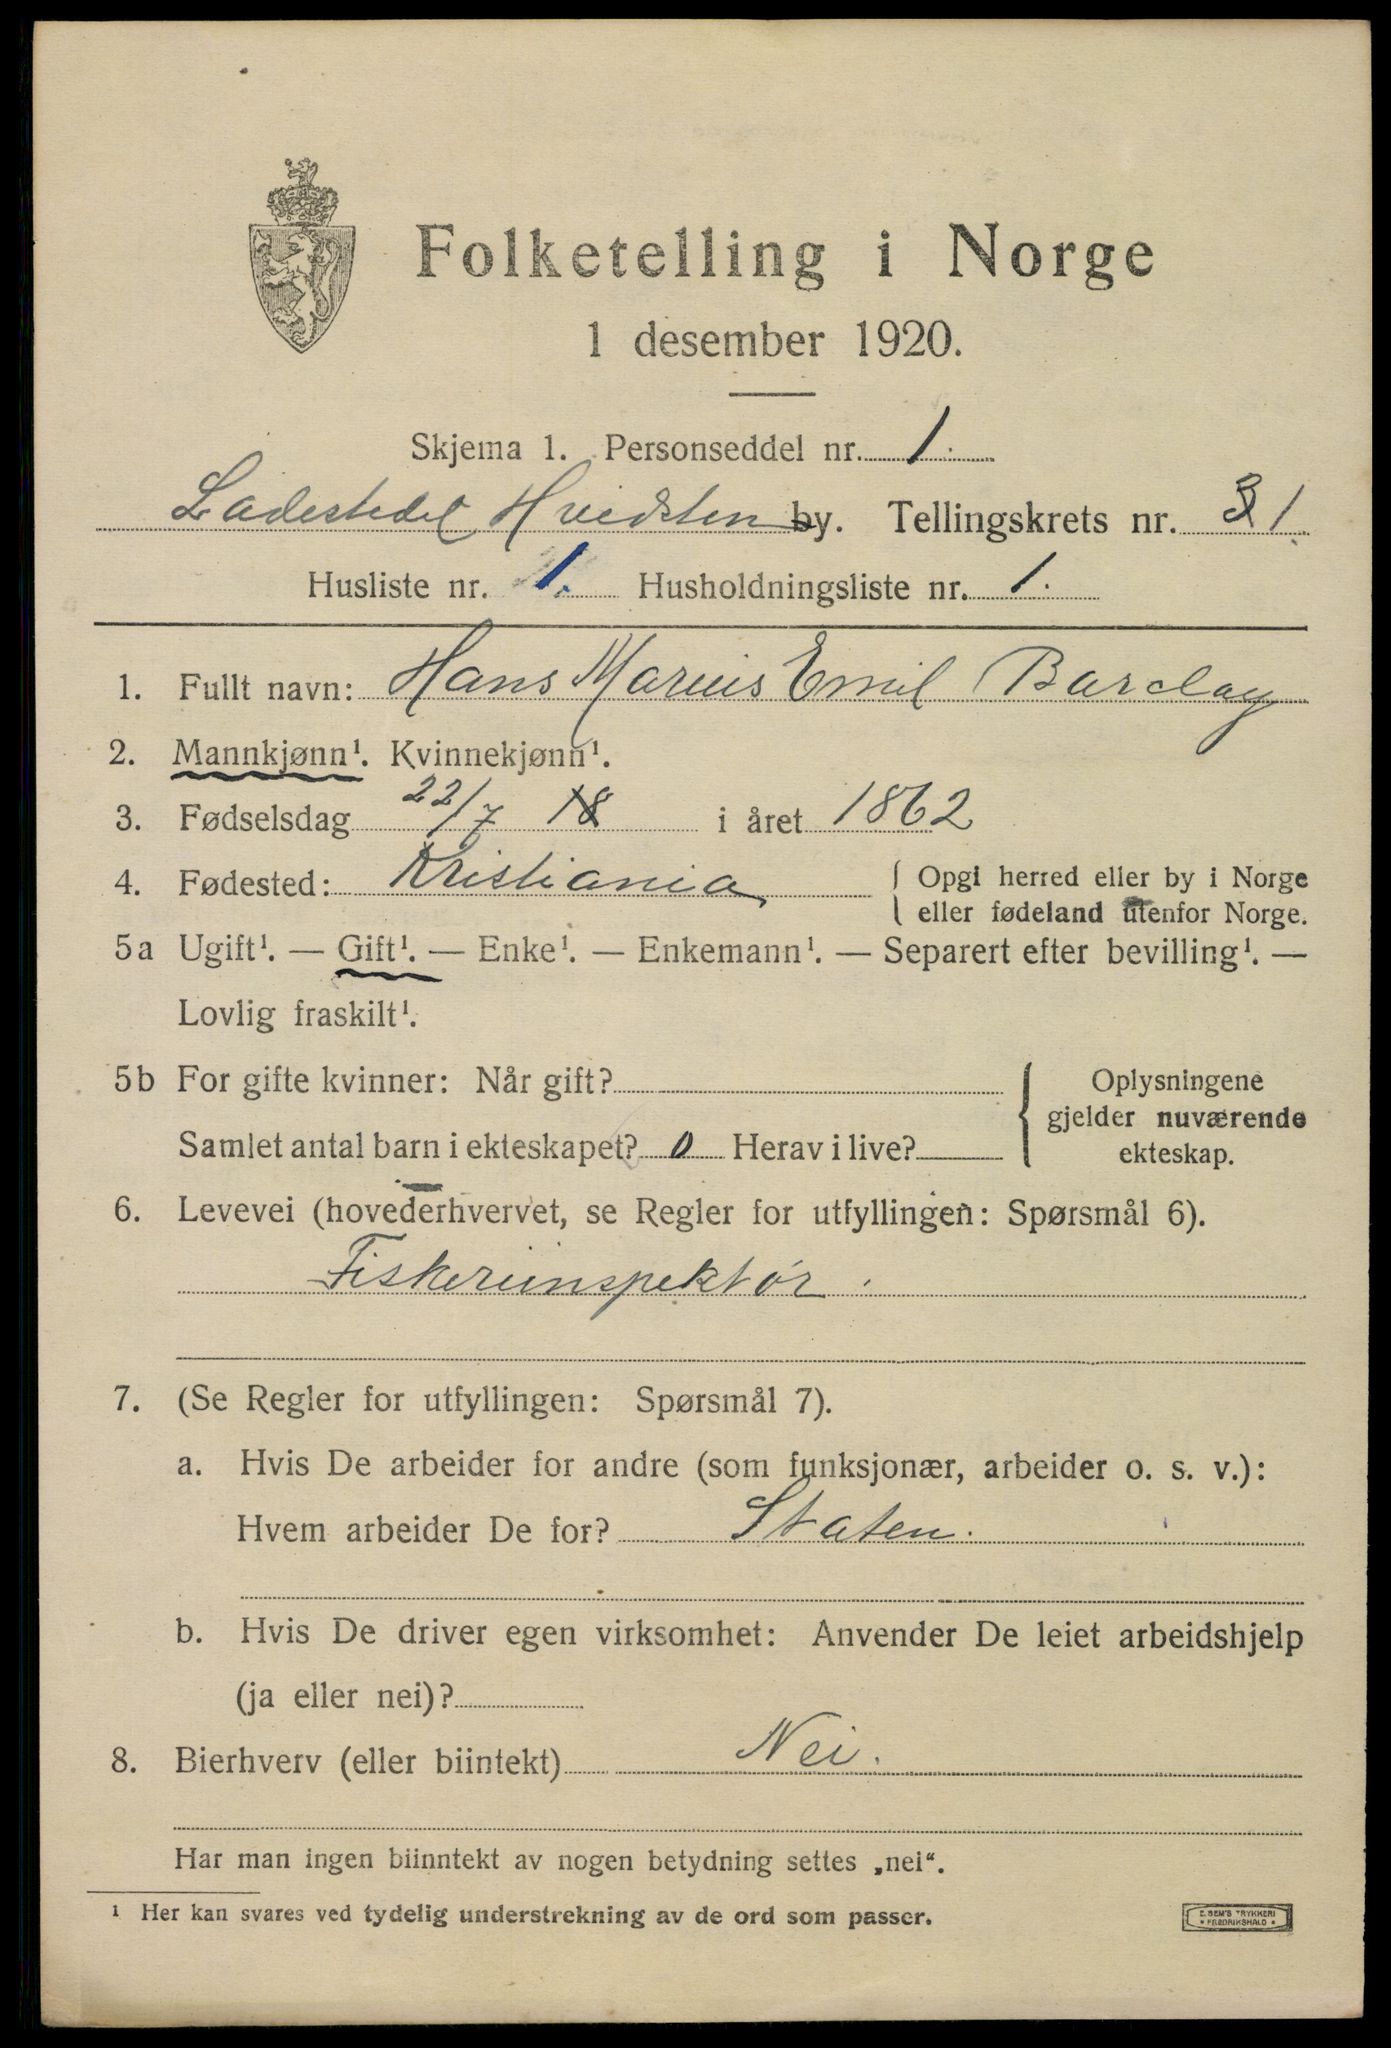 Folketelling i Norge
1 desember 1920.
Skjema 1. Personseddel nr. 1.
Ladestedet Hvidsten by. Tellingskrets nr. 31
Husliste nr. 1. Husholdningsliste nr. 1.
1. Fullt navn: Hans Marius Emil Barclay
2. Mannkjønn¹. Kvinnekjønn¹.
3. Fødselsdag 22/7 18 i året 1862
4. Fødested: Kristiania { Opgi herred eller by i Norge
eller fødeland utenfor Norge.
5a Ugift¹. — Gift¹. — Enke¹. — Enkemann¹. — Separert efter bevilling¹. —
Lovlig fraskilt¹.
5b For gifte kvinner: Når gift? { Oplysningene
gjelder nuværende
Samlet antal barn i ekteskapet? 0 Herav i live? ekteskap.
6. Levevei (hovederhvervet, se Regler for utfyllingen: Spørsmål 6).
Fiskeriinspektør.
7. (Se Regler for utfyllingen: Spørsmål 7).
a. Hvis De arbeider for andre (som funksjonær, arbeider o. s. v.):
Hvem arbeider De for? Staten.
b. Hvis De driver egen virksomhet: Anvender De leiet arbeidshjelp
(ja eller nei)?
8. Bierhverv (eller biintekt) Nei.
Har man ingen biinntekt av nogen betydning settes „nei“.
¹ Her kan svares ved tydelig understrekning av de ord som passer.
E. SEM'S TRYKKERI
* FREDRIKSHALD *